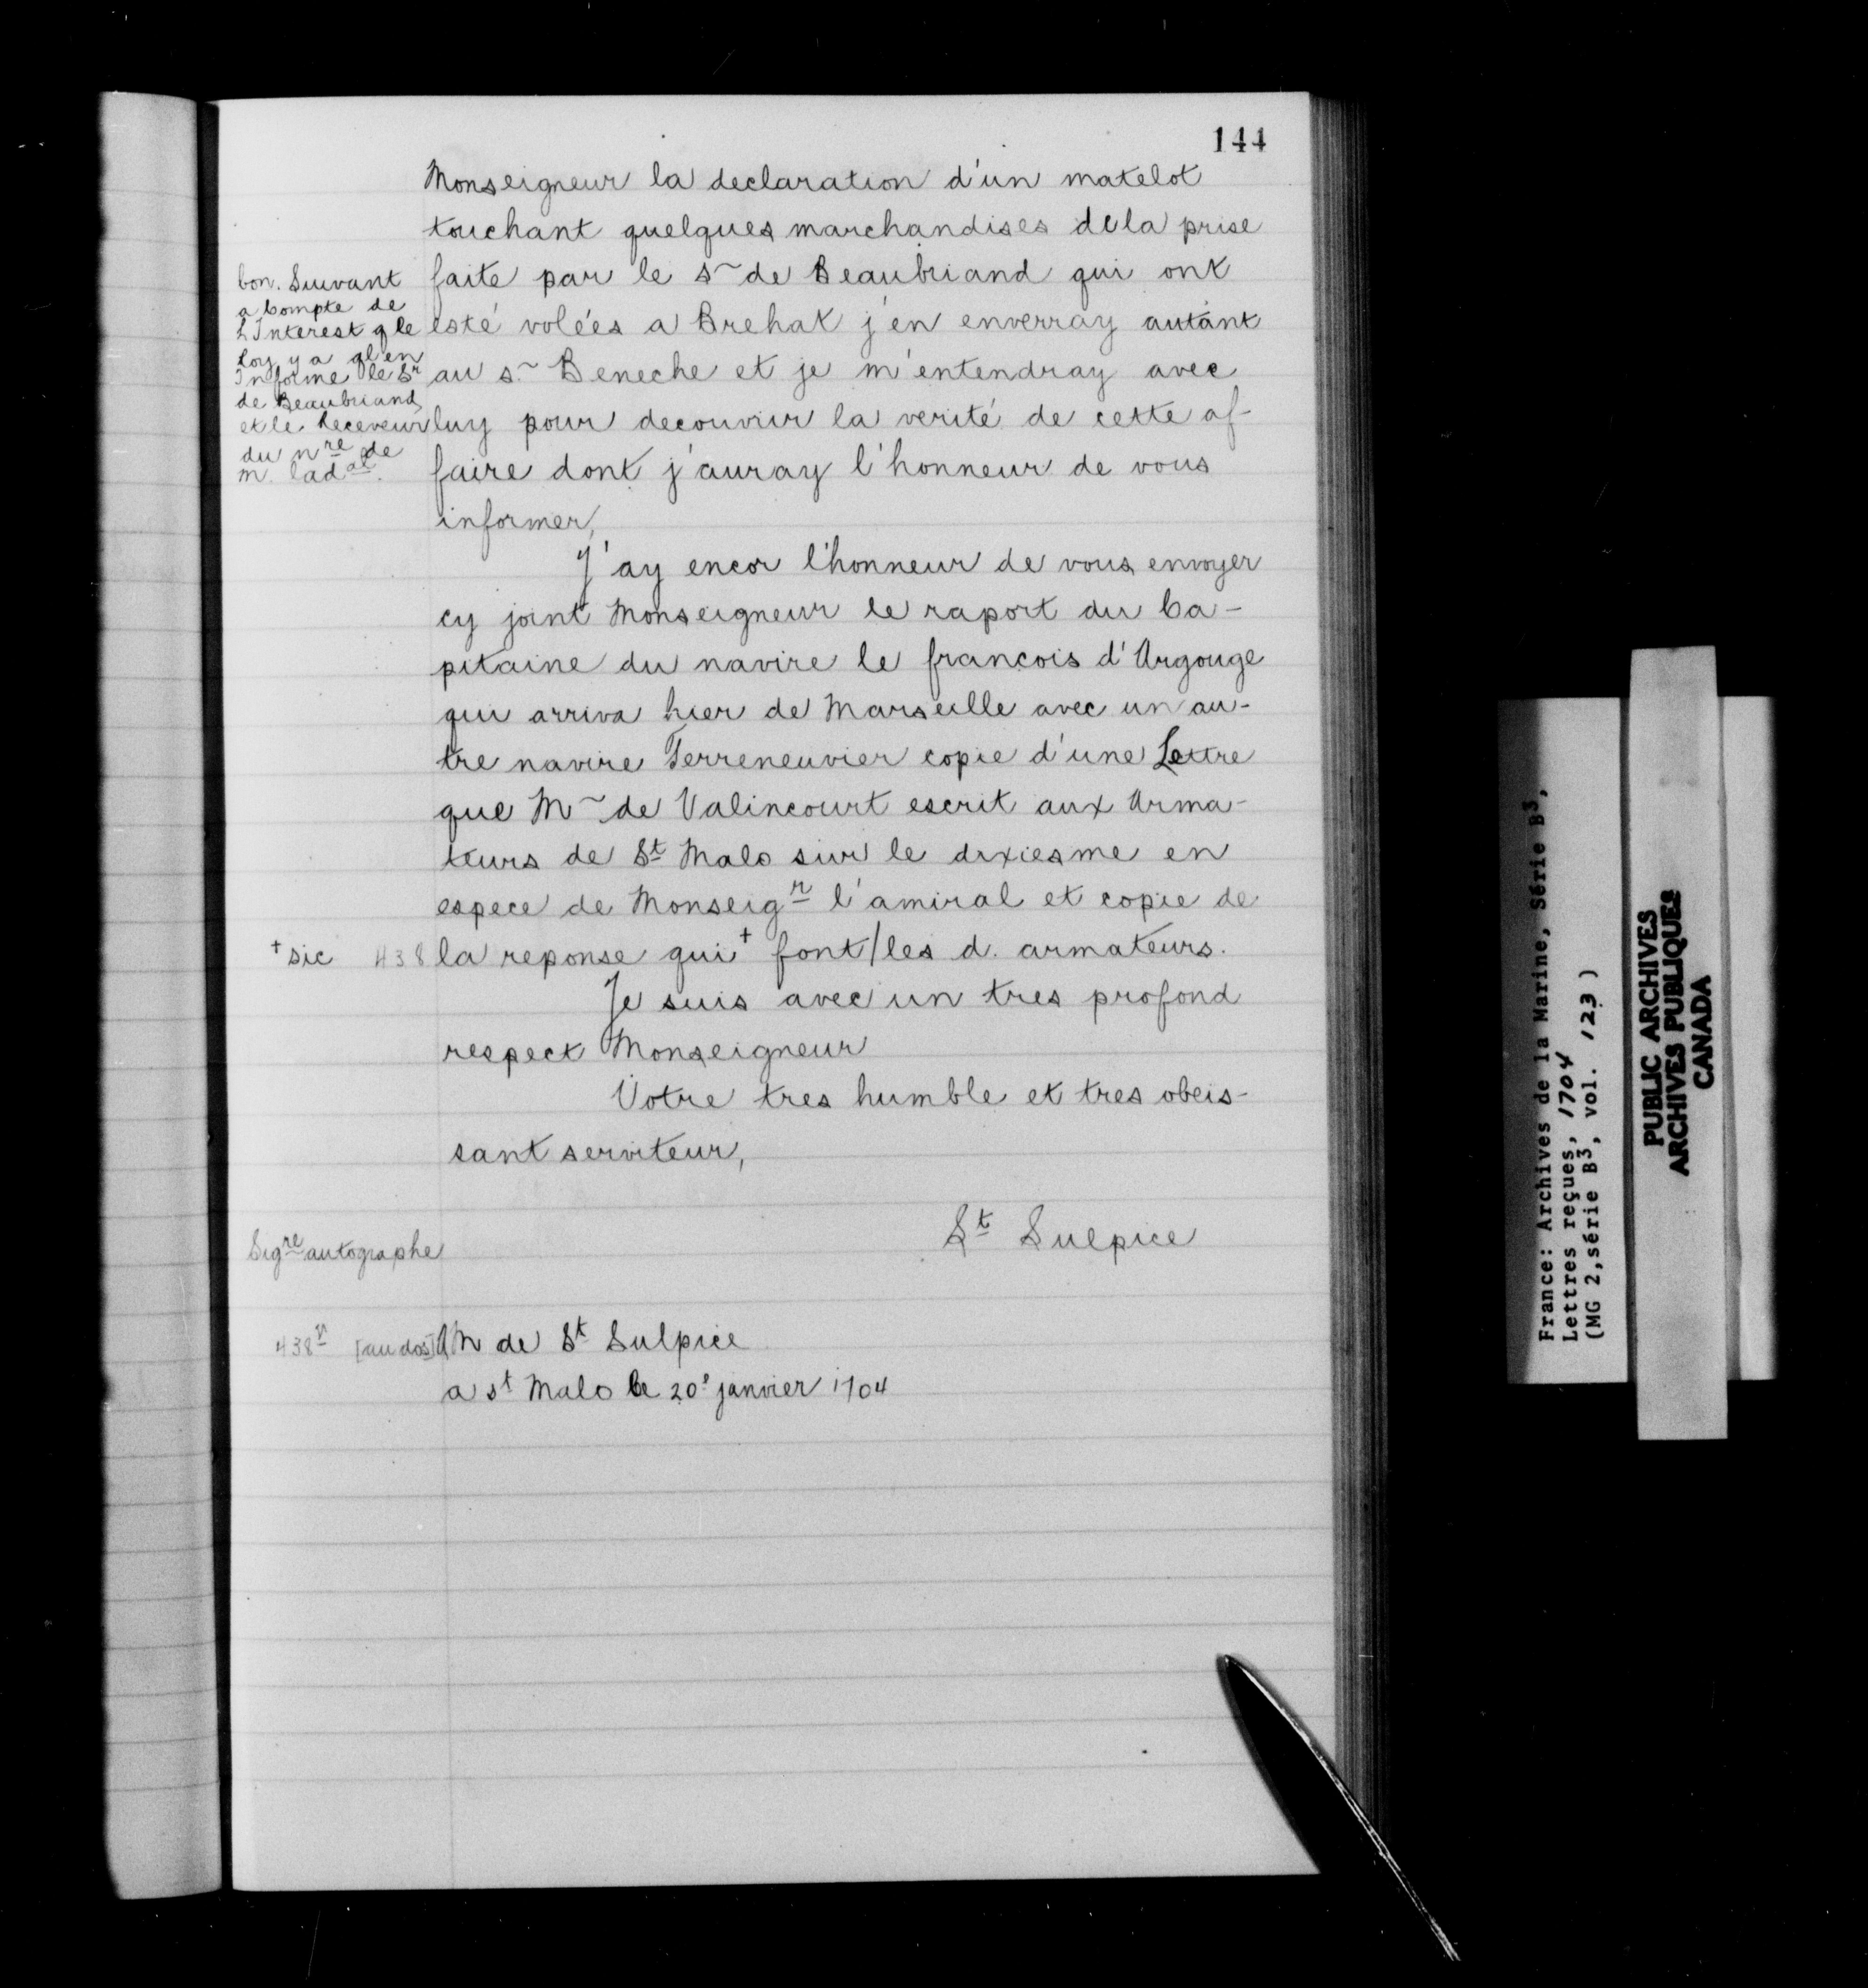 144
Monseigneur la declaration d'un matelot
touchant quelques marchandises de la prise
faite par le s~ de Beaubriand qui ont
esté volées a Brehat j'en enverray autant
au s~ Beneche et je m'entendray avec
luy pour decouvrir la verité de cette af-
faire dont j'auray l'honneur de vous
informer,
bon. Suivant
a compte de
L'Interest q le
Roy y a ql en
Informe le Sr
de Beaubriand
et le Receveur
du nre de
m. ladal.
J'ay encor l'honneur de vous envoyer
cy joint Monseigneur le raport du Ca-
pitaine du navire le francois d'Argouge
qui arriva hier de Marseille avec un au-
tre navire Terreneuvier copie d'une Lettre
que M~ de Valincourt escrit aux Arma-
teurs de St Malo sur le dixiesme en
espece de Monseigr l'amiral et copie de
+ sic 438 la reponse qui+ font/les d. armateurs.
Je suis avec un tres profond
respect Monseigneur
Votre tres humble et tres obeis-
sant serviteur,
St Sulpice
Sigre autographe
438v [au dos] M de St Sulpice
a st Malo le 20e janvier 1704
France: Archives de la Marine, Série B3,
Lettres reçues, 1704
(MG 2, série B3, vol. 123)
PUBLIC ARCHIVES
ARCHIVES PUBLIQUES
CANADA